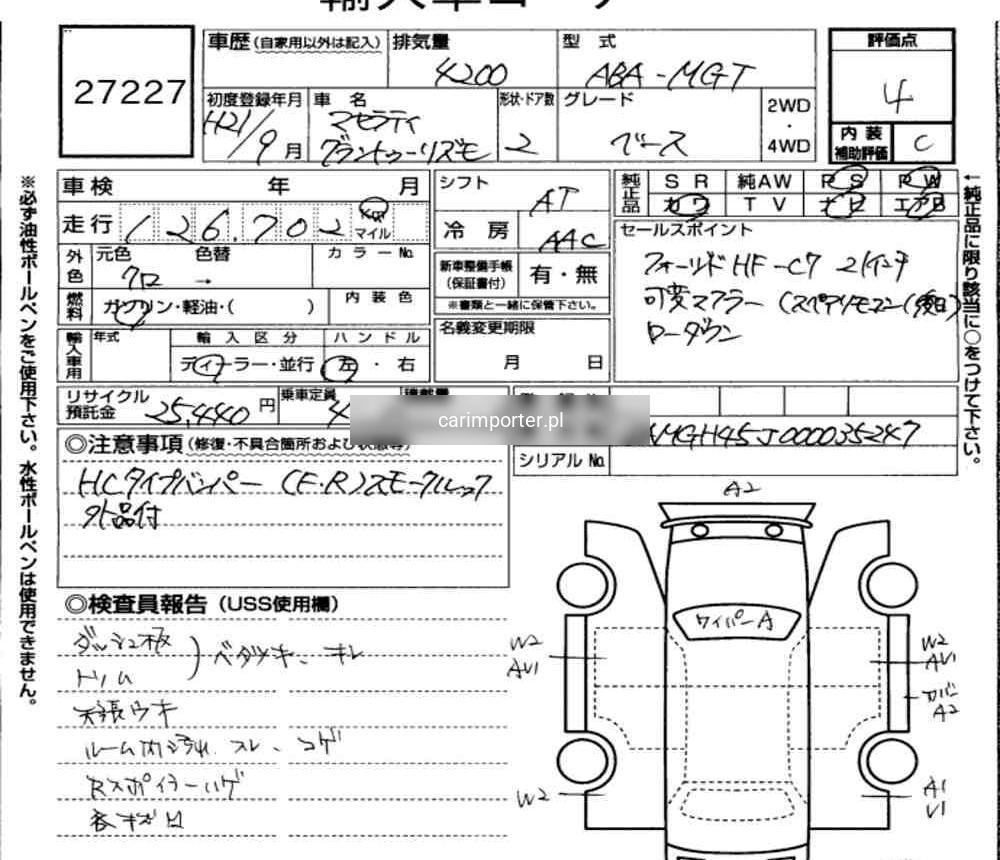 27227
車歴(自家用以外は記入) 排気量 型 式 評価点
4200 ABA-MGT 4
初度登録年月 車 名 形状・ドア数 グレード 2WD・4WD
H21/9月 マセラティ グラントゥーリズモ 2 ベース
内装補助評価 C
車検 年 月 シフト AT
純正品 SR 純AW PS PW
カワ TV ナビ エアB
走行 126,702 Km マイル 冷房 AAC
セールスポイント
外色 元色 色替 カラーNo.
クロ →
フォージドHF-C7 21インチ
新車整備手帳(保証書付) 有・無
※書類と一緒に保管下さい。
可変マフラー(スペアリモコン(後日)
ローダウン
燃料 ガソリン・軽油・( ) 内装色
名義変更期限
月 日
輸入車用 年式 輸入区分 ハンドル
ディーラー・並行 左・右
リサイクル預託金 25,440円 乗車定員 4
carimporter.pl
MGH45J000035247
シリアルNo.
◎注意事項(修復・不具合箇所および状態等)
HCタイプバンパー(F・R)スモークルック
外品付
◎検査員報告(USS使用欄)
ダッシュ板
トリム
ベタツキ、キレ
天張ウキ
ルーム内汚れ、スレ、コゲ
Rスポイラーハゲ
A2
ワイパーA
W2
AV1
W2
AV1
カバー
A2
W2
A1
V1
※必ず油性ボールペンをご使用下さい。水性ボールペンは使用できません。
←純正品に限り該当に○をつけて下さい。